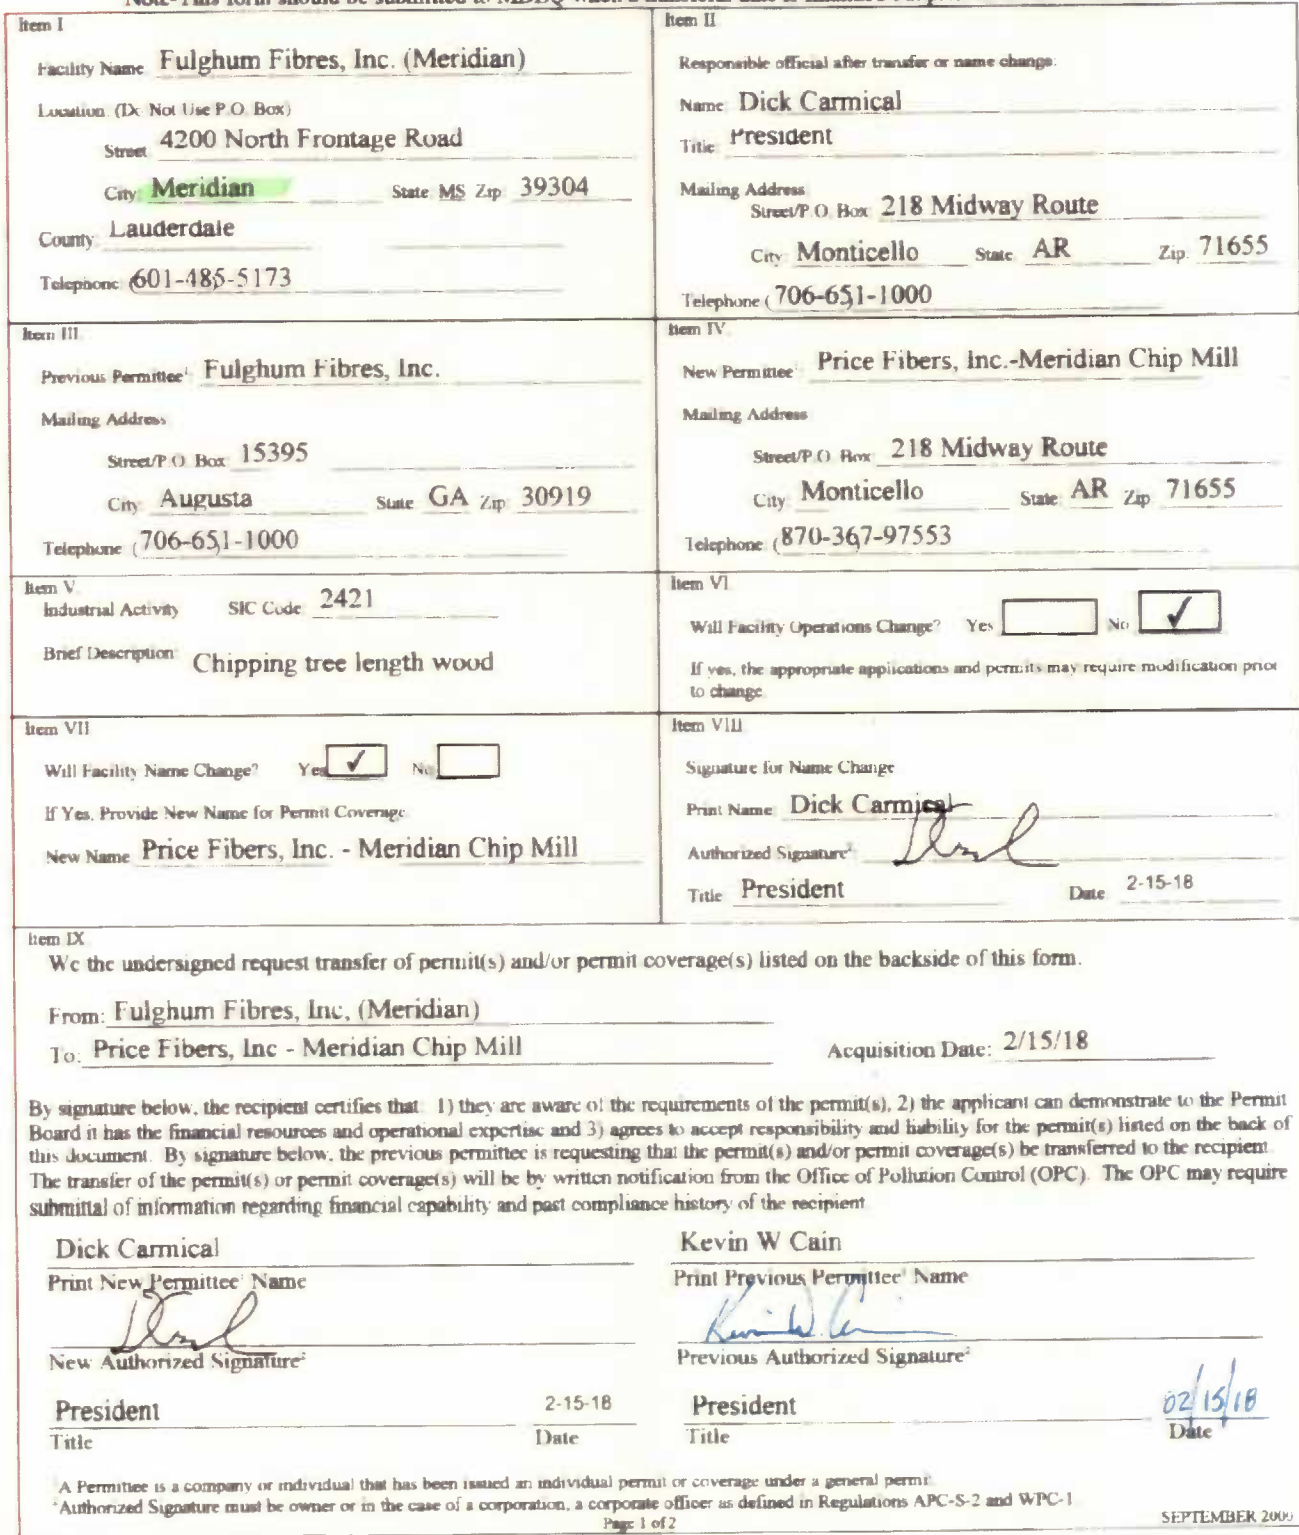 Item I
Facility Name Fulghum Fibres, Inc. (Meridian)
Location (Do Not Use P.O. Box)
Street 4200 North Frontage Road
City: Meridian State MS Zip 39304
County: Lauderdale
Telephone (601-485-5173
Item II
Responsible official after transfer or name change:
Name Dick Carmical
Title President
Mailing Address
Street/P.O. Box 218 Midway Route
City Monticello State AR Zip 71655
Telephone ( 706-651-1000
Item III
Previous Permittee¹ Fulghum Fibres, Inc.
Mailing Address
Street/P.O. Box 15395
City Augusta State GA Zip 30919
Telephone (706-651-1000
Item IV
New Permittee¹ Price Fibers, Inc.-Meridian Chip Mill
Mailing Address
Street/P.O. Box 218 Midway Route
City Monticello State AR Zip 71655
Telephone (870-367-97553
Item V
Industrial Activity SIC Code 2421
Brief Description Chipping tree length wood
Item VI
Will Facility Operations Change? Yes No ✓
If yes, the appropriate applications and permits may require modification prior
to change
Item VII
Will Facility Name Change? Yes ✓ No
If Yes, Provide New Name for Permit Coverage
New Name Price Fibers, Inc. - Meridian Chip Mill
Item VIII
Signature for Name Change
Print Name Dick Carmical
Authorized Signature²
Title President Date 2-15-18
Item IX
We the undersigned request transfer of permit(s) and/or permit coverage(s) listed on the backside of this form.
From: Fulghum Fibres, Inc, (Meridian)
To: Price Fibers, Inc - Meridian Chip Mill Acquisition Date: 2/15/18
By signature below, the recipient certifies that 1) they are aware of the requirements of the permit(s), 2) the applicant can demonstrate to the Permit
Board it has the financial resources and operational expertise and 3) agrees to accept responsibility and liability for the permit(s) listed on the back of
this document. By signature below, the previous permittee is requesting that the permit(s) and/or permit coverage(s) be transferred to the recipient
The transfer of the permit(s) or permit coverage(s) will be by written notification from the Office of Pollution Control (OPC). The OPC may require
submittal of information regarding financial capability and past compliance history of the recipient
Dick Carmical
Print New Permittee¹ Name
New Authorized Signature²
President 2-15-18
Title Date
Kevin W Cain
Print Previous Permittee¹ Name
Kevin W. Cain
Previous Authorized Signature²
President 02/15/18
Title Date
A Permittee is a company or individual that has been issued an individual permit or coverage under a general permit.
²Authorized Signature must be owner or in the case of a corporation, a corporate officer as defined in Regulations APC-S-2 and WPC-1
Page 1 of 2
SEPTEMBER